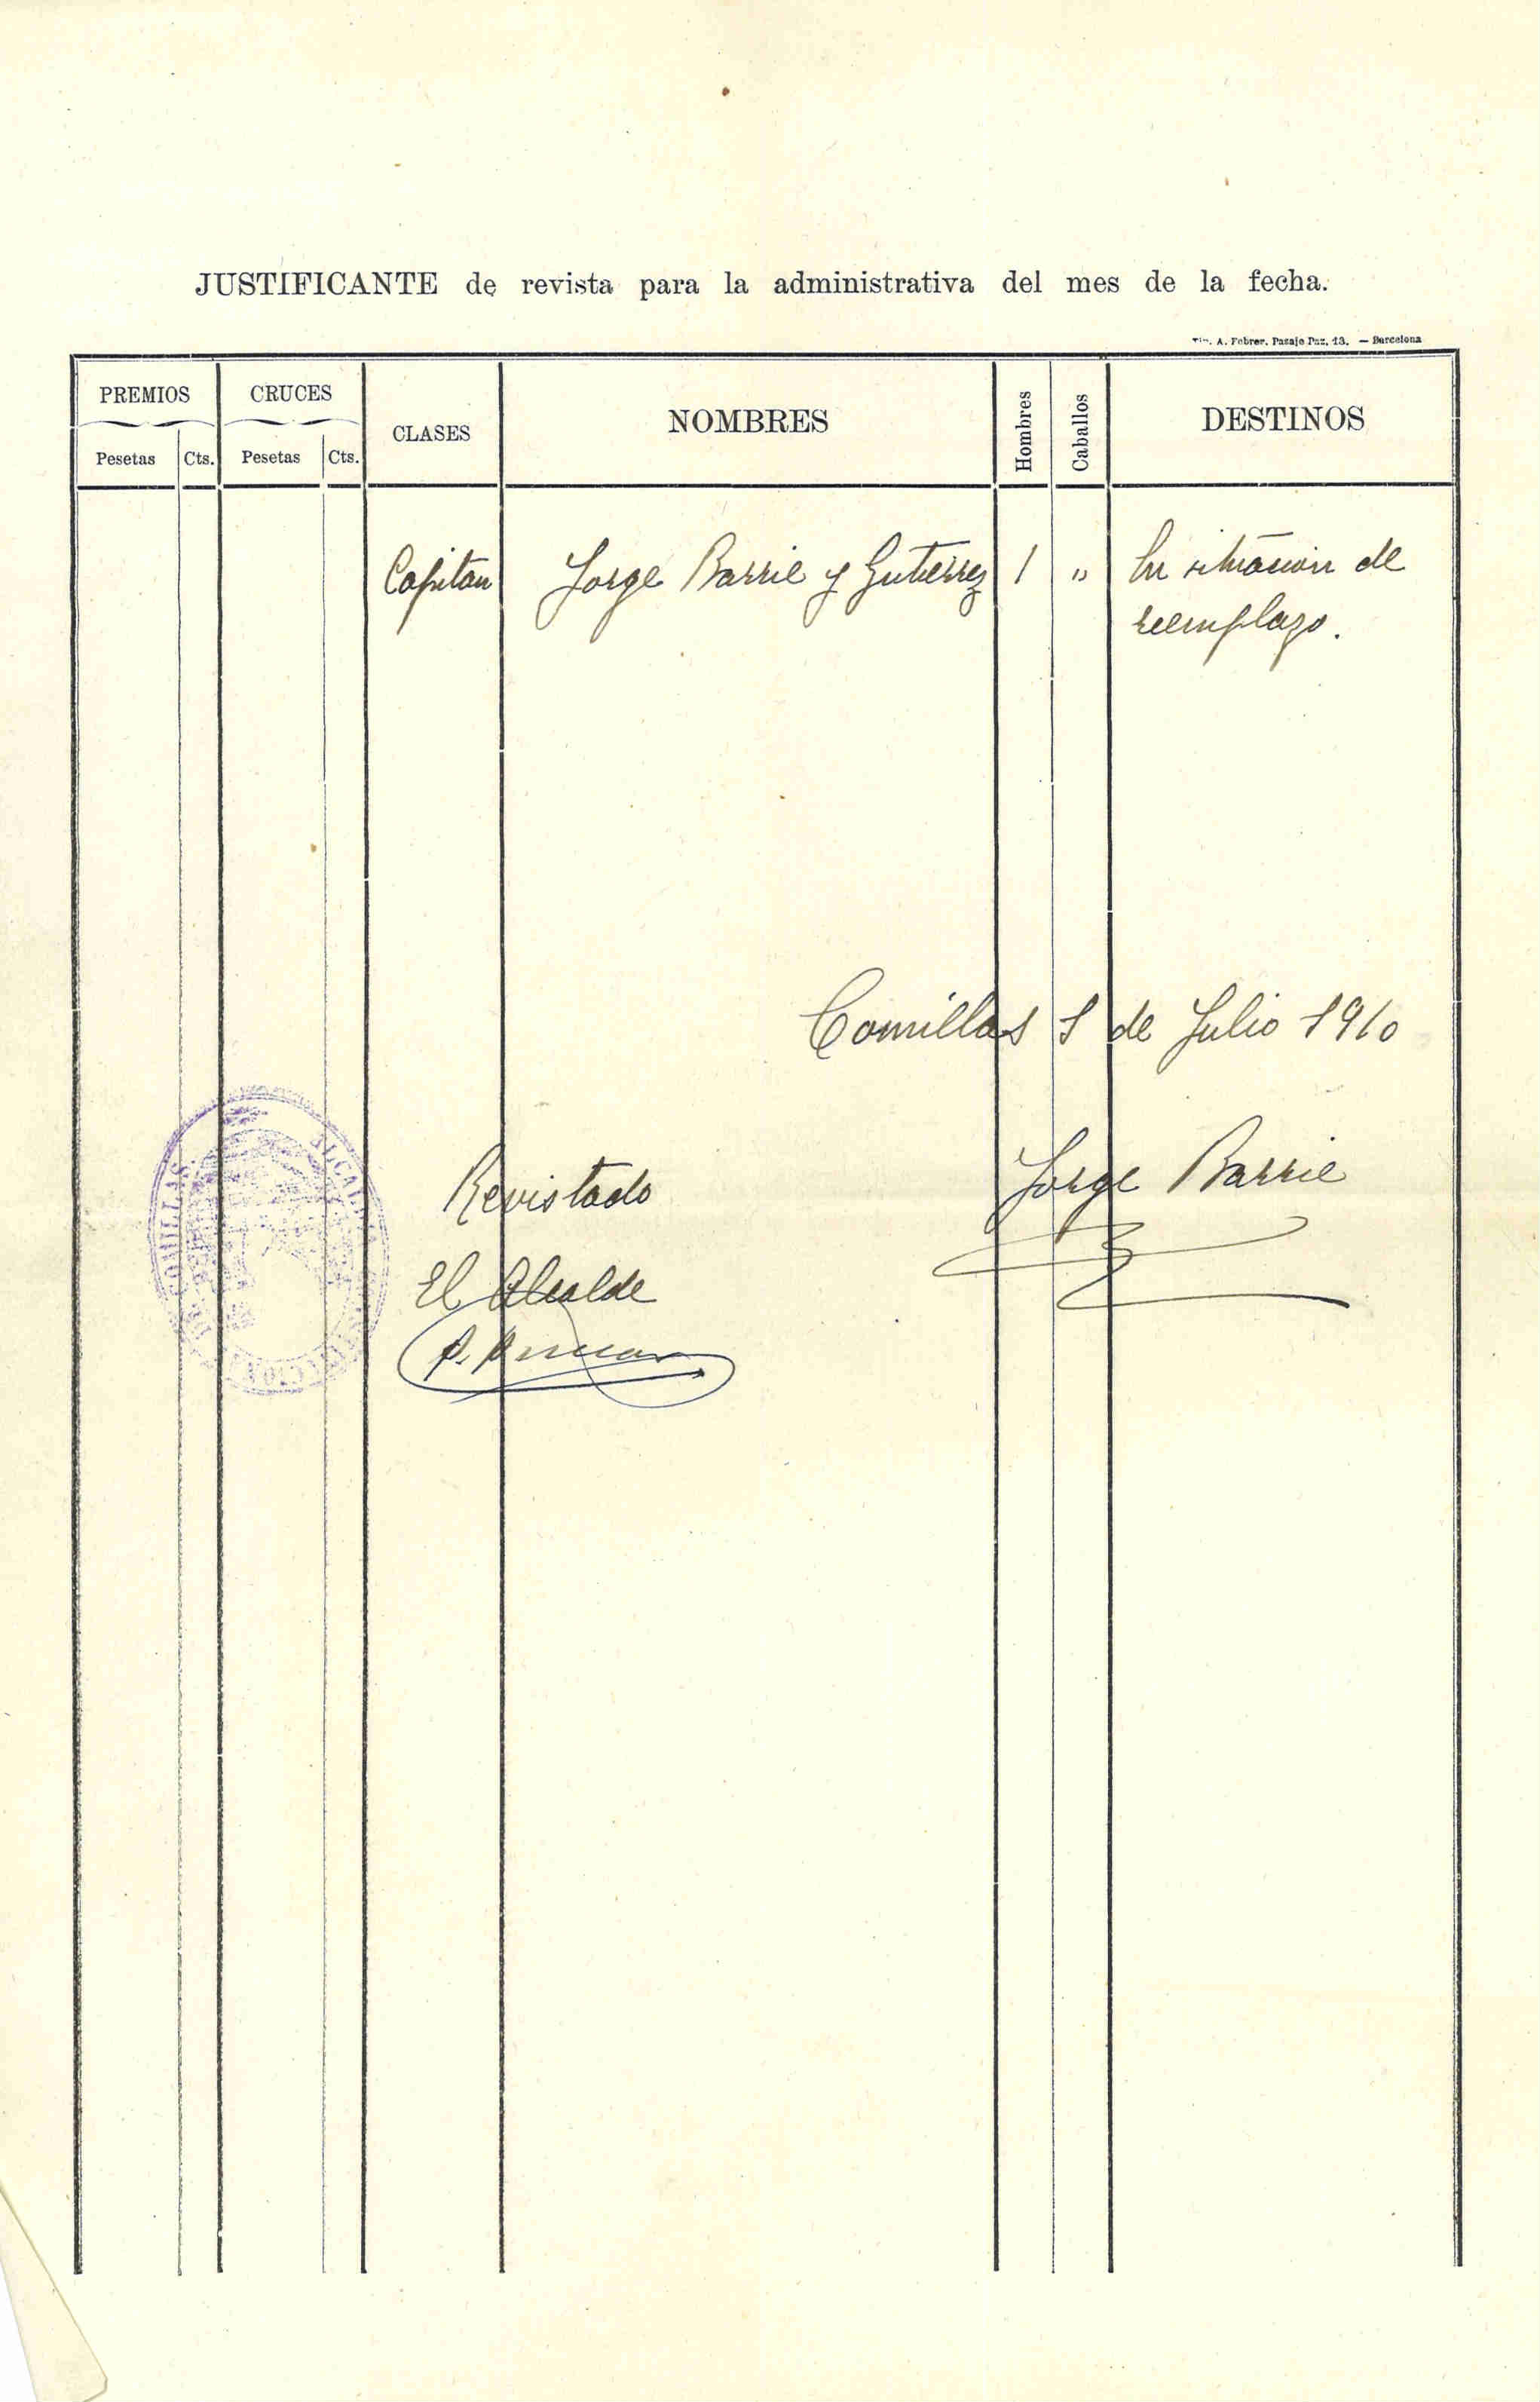 JUSTIFICANTE de revista para la administrativa del mes de la fecha.
A. Febrer. Pasaje Paz, 13. — Barcelona
PREMIOS CRUCES CLASES NOMBRES Hombres Caballos DESTINOS
Pesetas Cts. Pesetas Cts.
Capitan Jorge Barrie y Gutierrez 1 " En situacion de
reemplazo.
Comillas 1 de Julio 1910
Jorge Barrie
Revistado
El Alcalde
ALCALDIA DE COMILLAS